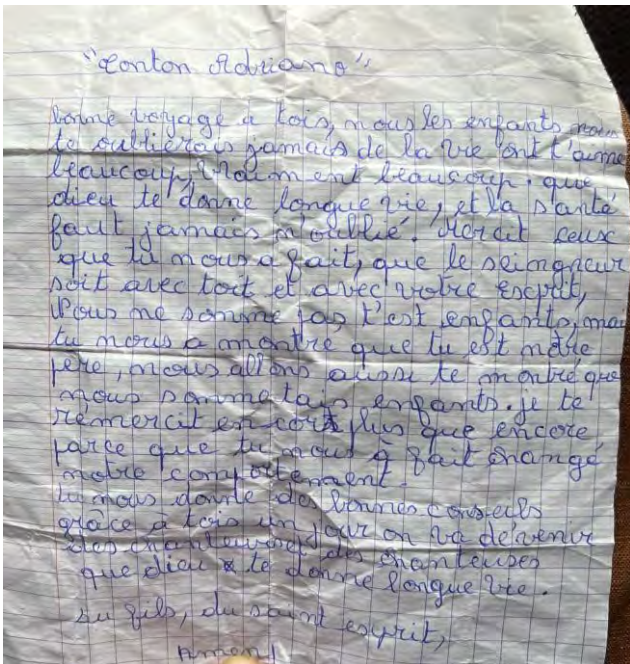 "Tonton Adriano"
bonne voyage à tois, nous les enfants nous
te oublierais jamais de la vie ont t'aime
beaucoup, vraiment beaucoup. que
dieu te donne longue vie, et la santé
faut jamais n'oublié. ceux
que tu nous a fait, que le seingneur
soit avec toit et avec votre esprit,
Nous ne somme pas t'est enfants, mai
tu nous a montré que tu est notre
père, nous allons aussi te montré que
nous somme tais enfants. je te
remercit encore plus que encore
parce que tu nous à fait changé
notre comportement.
tu nous donne des bonnes conseils
grâce à tois un jour on va dévenir
des chanteurs des chanteuses
que dieu te donne longue vie.
Au fils, du saint esprit,
Amen!